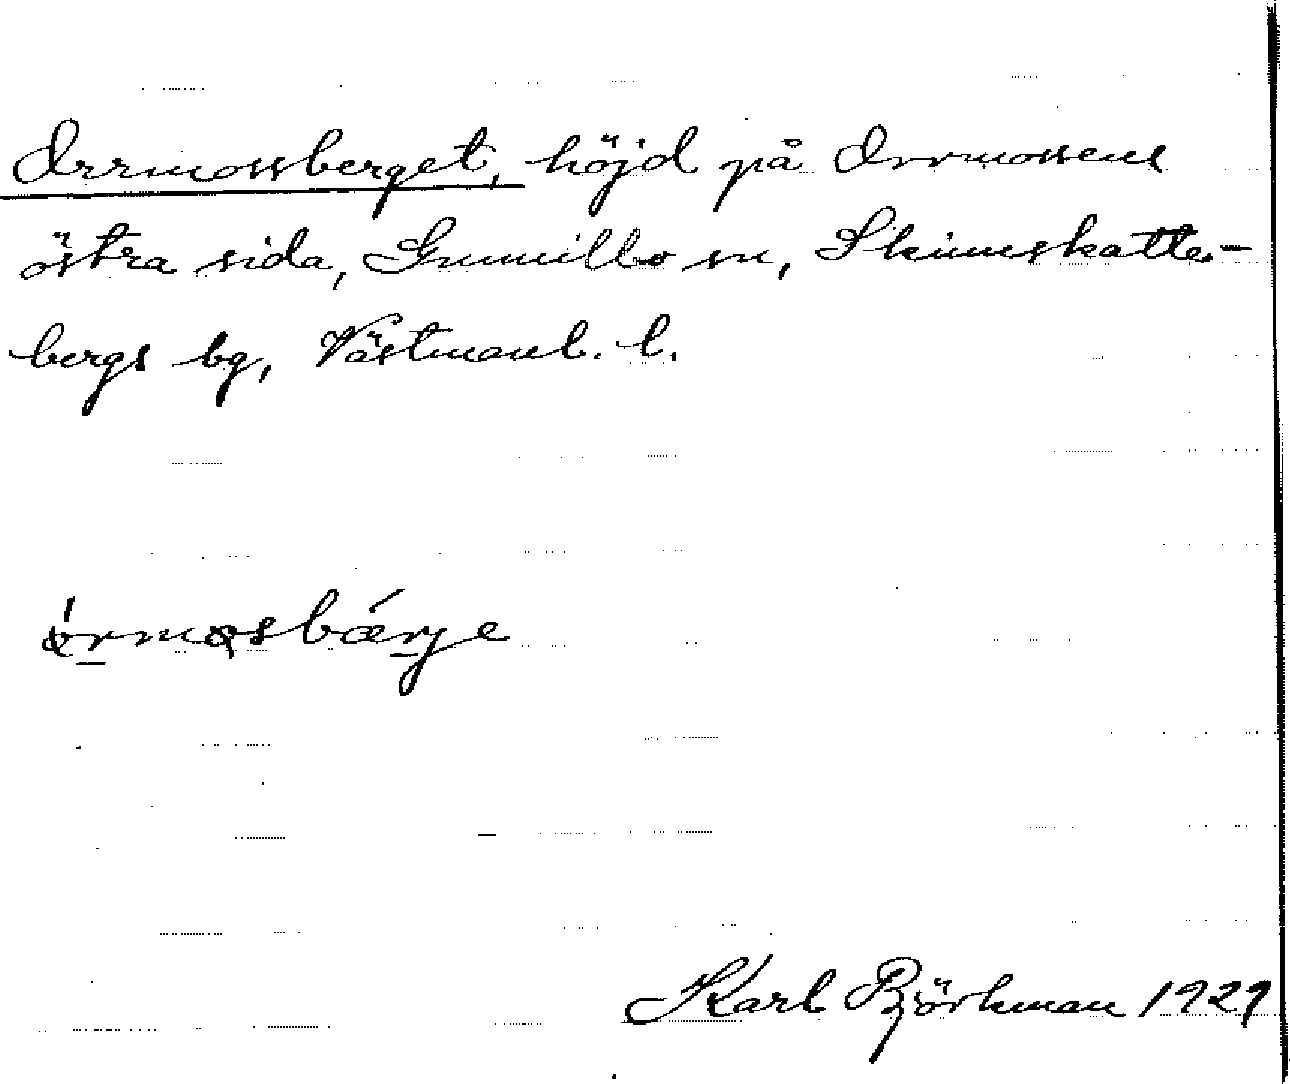 Orrmossberget, höjd på Orrmossens
östra sida, Gunnilbo sn, Skinnskatte-
bergs bg, Västmanl. l.
órmosbǽrje
Karl Björkman 1929